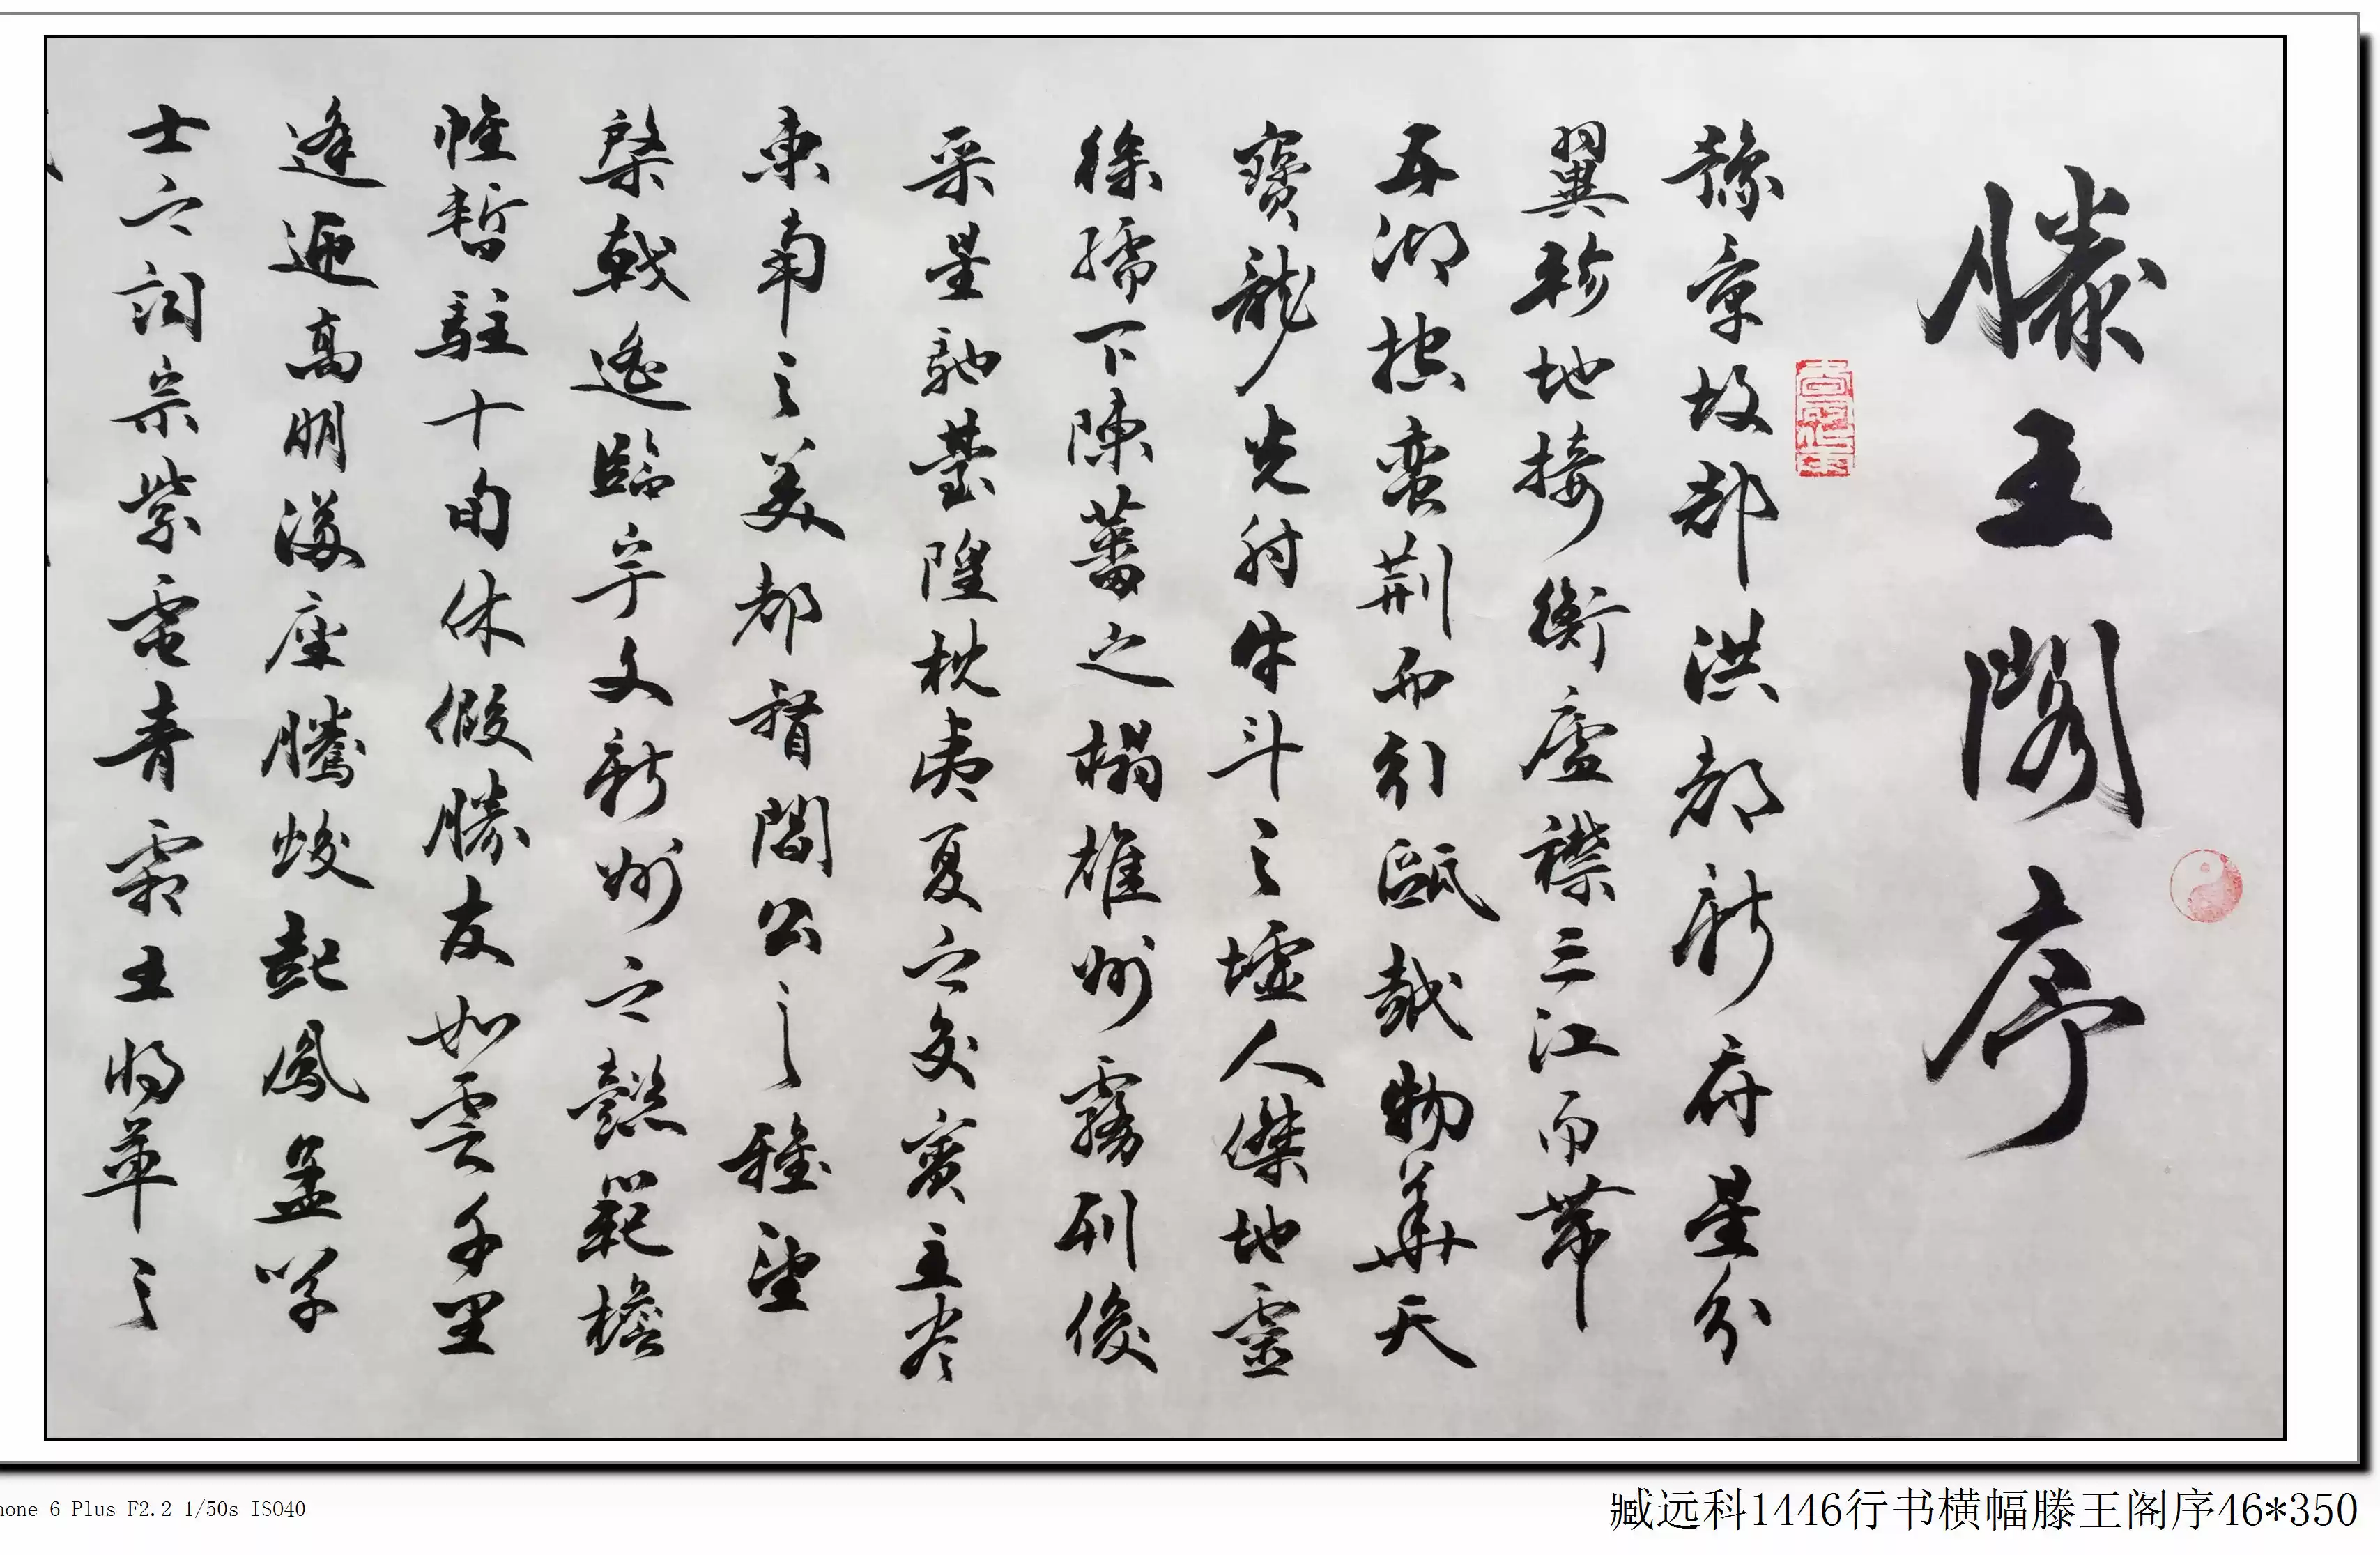 滕王阁序
豫章故郡洪都新府星分
翼轸地接衡庐襟三江而带
五湖控蛮荆而引瓯越物华天
宝龙光射牛斗之墟人杰地灵
徐孺下陈蕃之榻雄州雾列俊
采星驰台隍枕夷夏之交宾主尽
东南之美都督阎公之雅望
棨戟遥临宇文新州之懿范襜
帷暂驻十旬休假胜友如云千里
逢迎高朋满座腾蛟起凤孟学
士之词宗紫电青霜王将军之
hone 6 Plus F2.2 1/50s ISO40
臧远科1446行书横幅滕王阁序46*350